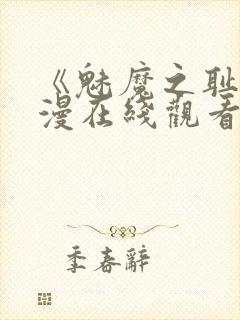 《魅魔之耻
漫在线觀看
季春辭